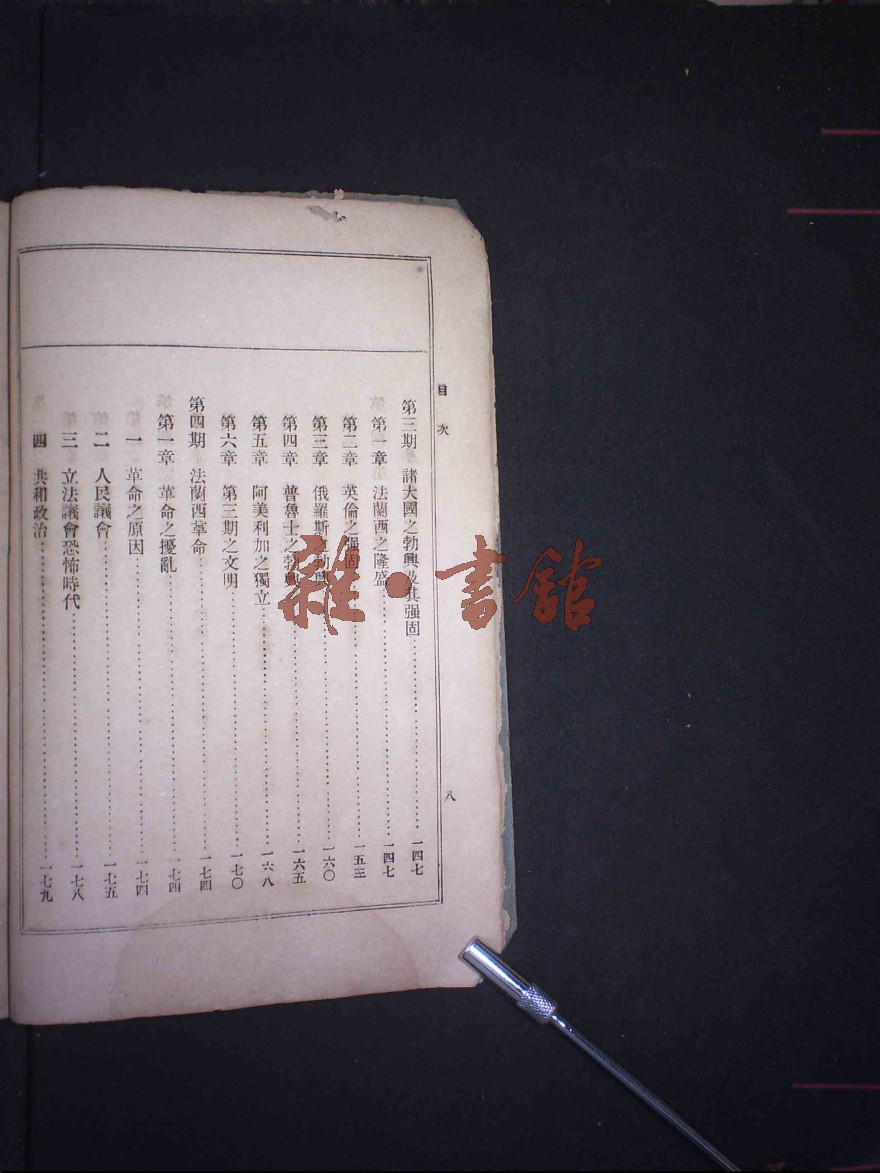 目次
八
第三期　諸大國之勃興及其强固……一四七
第一章　法蘭西之隆盛……一四七
第二章　英倫之强固……一五三
第三章　俄羅斯之勃興……一六〇
第四章　普魯士之勃興……一六五
第五章　阿美利加之獨立……一六八
第六章　第三期之文明……一七〇
第四期　法蘭西革命……一七四
第一章　革命之擾亂……一七四
一　革命之原因……一七四
二　人民議會……一七五
三　立法議會恐怖時代……一七八
四　共和政治……一七九
雜·書館